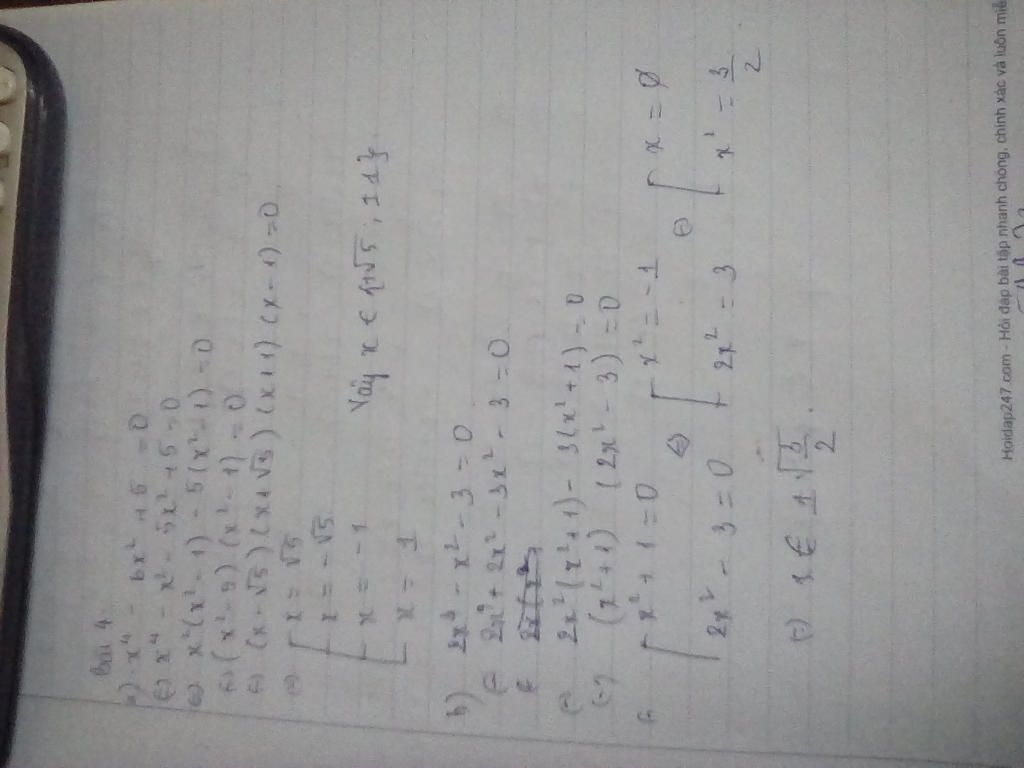 Bài 4.
a) x⁴ - 6x² + 5 = 0
(=) x⁴ - x² - 5x² + 5 = 0
(=) x²(x² - 1) - 5(x² - 1) = 0
(=) (x² - 5)(x² - 1) = 0
(=) (x - √5)(x + √5)(x + 1)(x - 1) = 0
(=) [ x = √5
x = -√5
x = -1
x = 1
Vậy x ∈ {±√5; ±1}.
b) 2x⁴ - x² - 3 = 0
(=) 2x⁴ + 2x² - 3x² - 3 = 0
(=) 2x²(x² + 1) - 3(x² + 1) = 0
(=) (x² + 1)(2x² - 3) = 0
(=) [ x² + 1 = 0 (=) [ x² = -1 (=) [ x = ∅
2x² - 3 = 0 [ 2x² = 3 [ x² = 3/2
(=) x ∈ ±√3/2.
Hoidap247.com - Hỏi đáp bài tập nhanh chóng, chính xác và luôn miễ